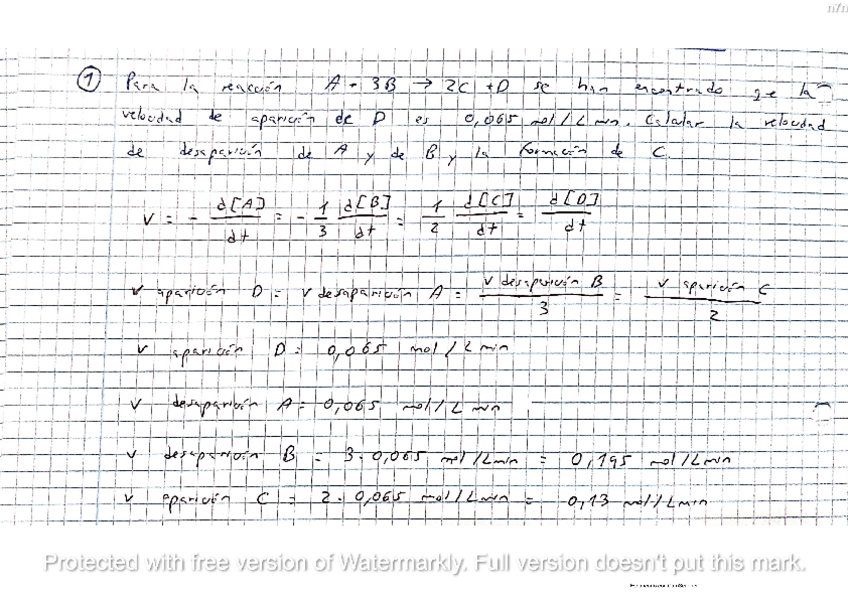 n7n
① Para la reacción A + 3B → 2C + D se han encontrado qe la
velocidad de aparición de D es 0,065 mol/L min. Calcular la velocidad
de desaparición de A y de B y la formación de C.
V = - d[A]/dt = - 1/3 d[B]/dt = 1/2 d[C]/dt = d[D]/dt
v aparición D = v desaparición A = v desaparición B / 3 = v aparición C / 2
v aparición D = 0,065 mol/L min
v desaparición A = 0,065 mol/L min
v desaparición B = 3·0,065 mol/Lmin = 0,195 mol/Lmin
v aparición C = 2·0,065 mol/Lmin = 0,13 mol/Lmin
Protected with free version of Watermarkly. Full version doesn't put this mark.